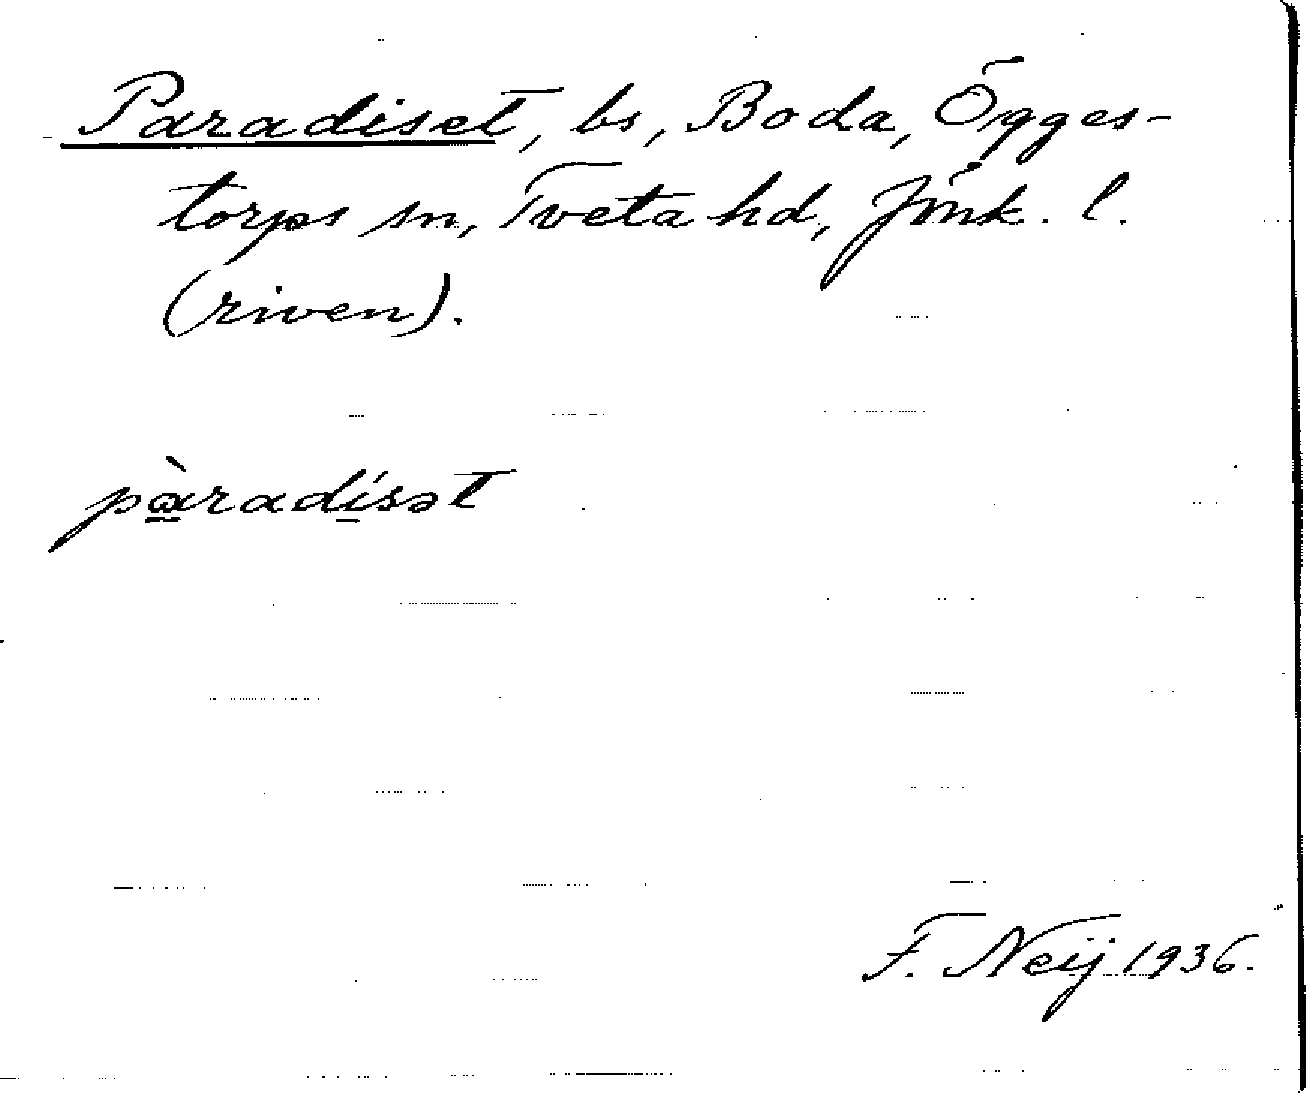 Paradiset, bs, Boda, Ögges-
torps sn, Tveta hd, Jönk. l.
(riven).
pàradísət
F. Neij 1936.